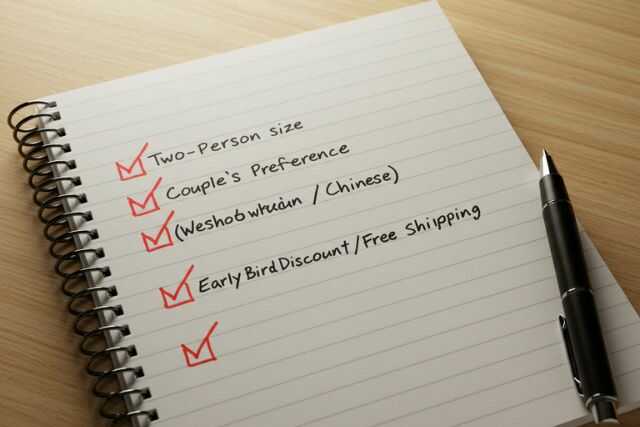 Two-Person size
Couple's Preference
/ Chinese)
Early Bird Discount/Free Shipping